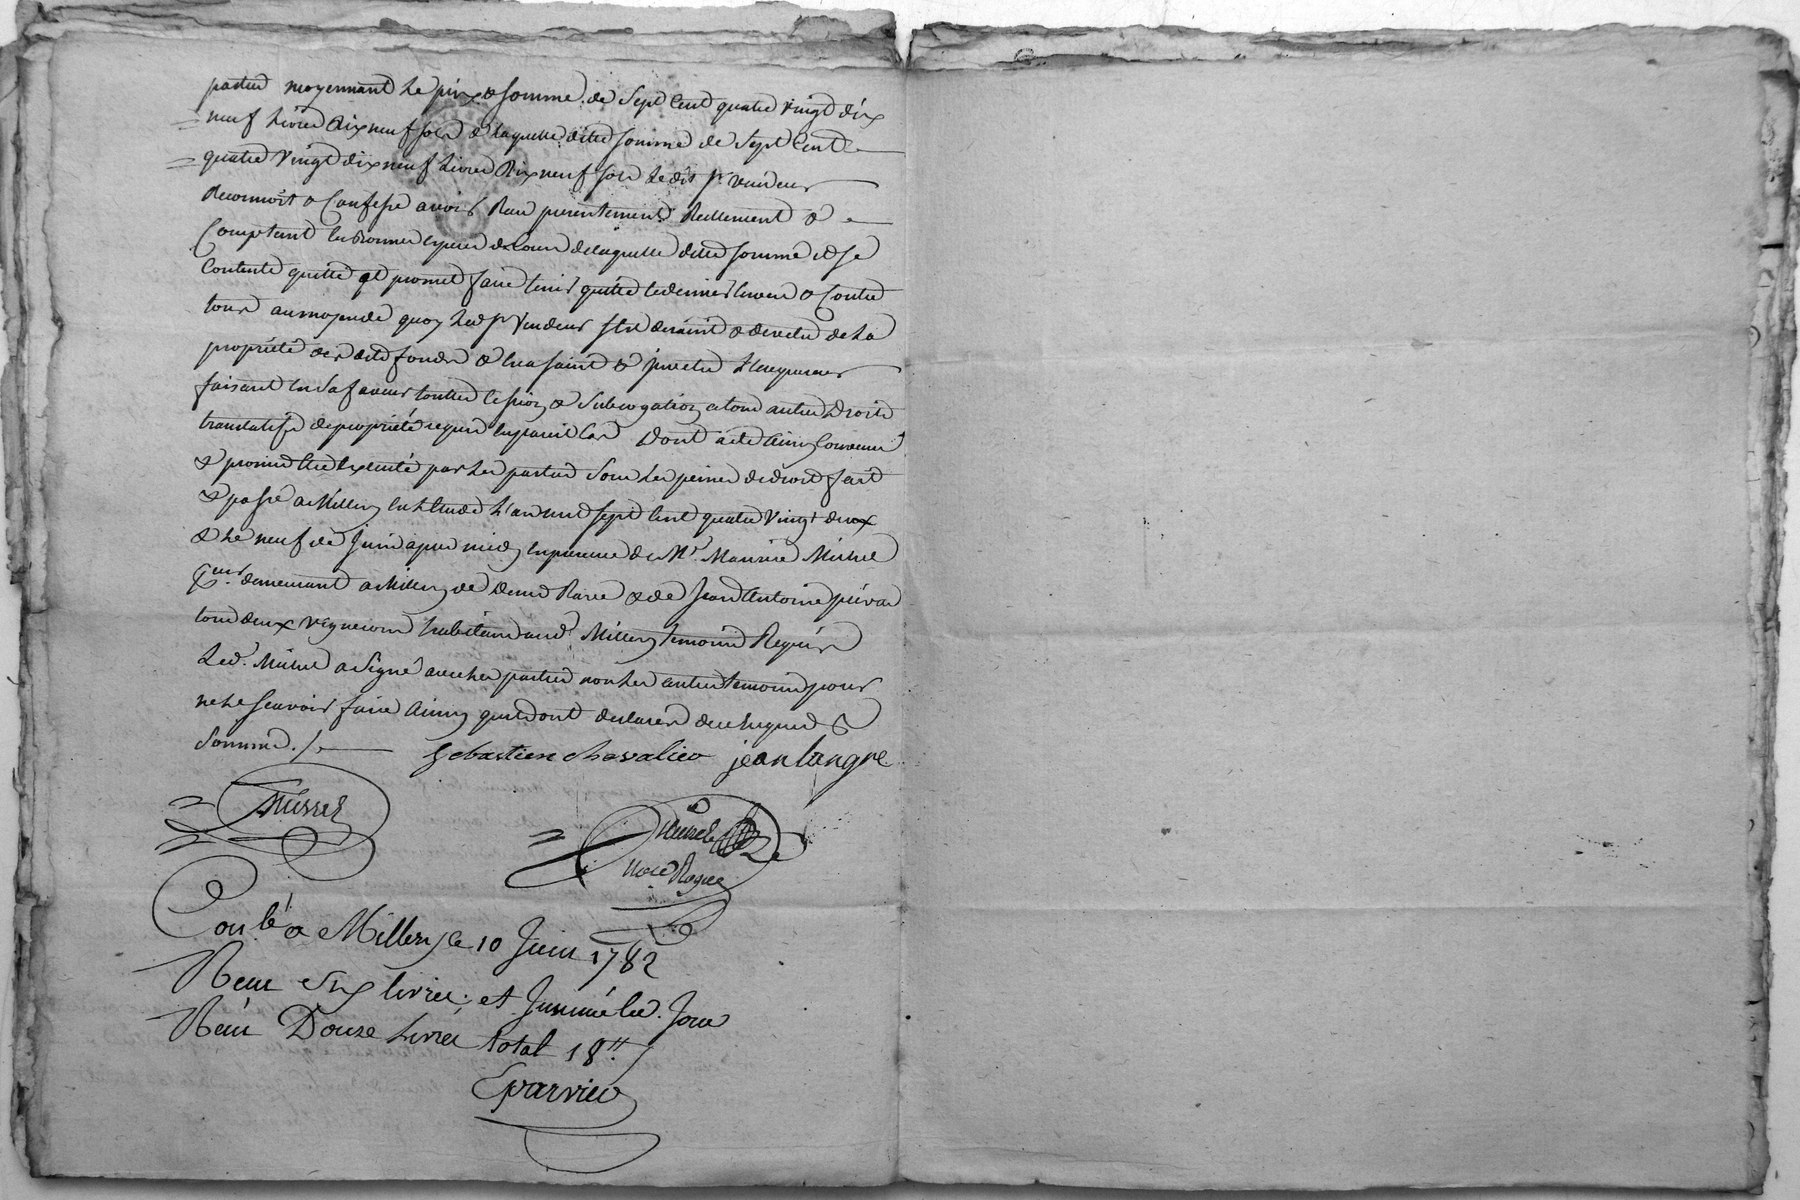 parties moyennant le prix & somme de sept cent quatre vingt dix
neuf livres dix neuf sols & laquelle ditte somme de sept cent
quatre vingt dix neuf livres dix neuf sols ledit sr vendeur
Reconnoit & Confesse avoir Recu presentement Reellement &
Comptant en bonnes especes de cours de laquelle ditte somme il se
Contente quitte et promet faire tenir quitte lesd envers & Contre
tous au moyen de quoy led sr Vendeur s'est demis & devetu de la
propriété desdits fonds & en a saisi & investu l'acquereur
faisant en sa faveur toutte cession & Subrogation & tous autres Droits
translatifs de propriété requis en pareil Cas Dont acte ainsy Convenu
& promis etre Executé par les parties Sous les peines de droit fait
& passé a Millery en Etude l'an mil sept cent quatre Vingt deux
& le neuf de Juin apres midy en presence de Mr. Maurice Michel
demeurant a Millery de Denis & de Jean Antoine
tous deux vignerons habitans aud. Millery temoins Requis
Led. Michel a signé avec les parties non les autres temoins pour
ne le scavoir faire ainsy qu'ils ont declaré de ce enquis &
sommé./.
sebastien chevalier jean langre
Michel
not. Royal
Conlé a Millery le 10 Juin 1782
Recu Six livres. et Insinué led. Jour
Recu Douze Livres total 18tt.
Eparvier